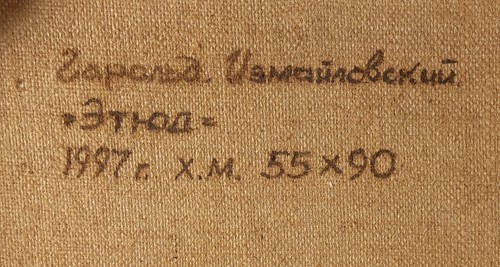 Гарольд Измайловский
"Этюд"
1997г. х.м. 55×90